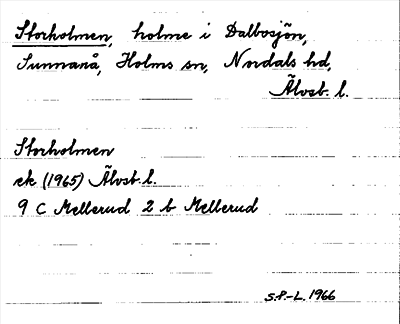 Storholmen, holme i Dalbosjön,
Sunnanå, Holms sn, Nordals hd,
Älvsb. l.
Storholmen
ek (1965) Älvsb. l.
9 C Mellerud 2 b Mellerud
S.P.-L. 1966